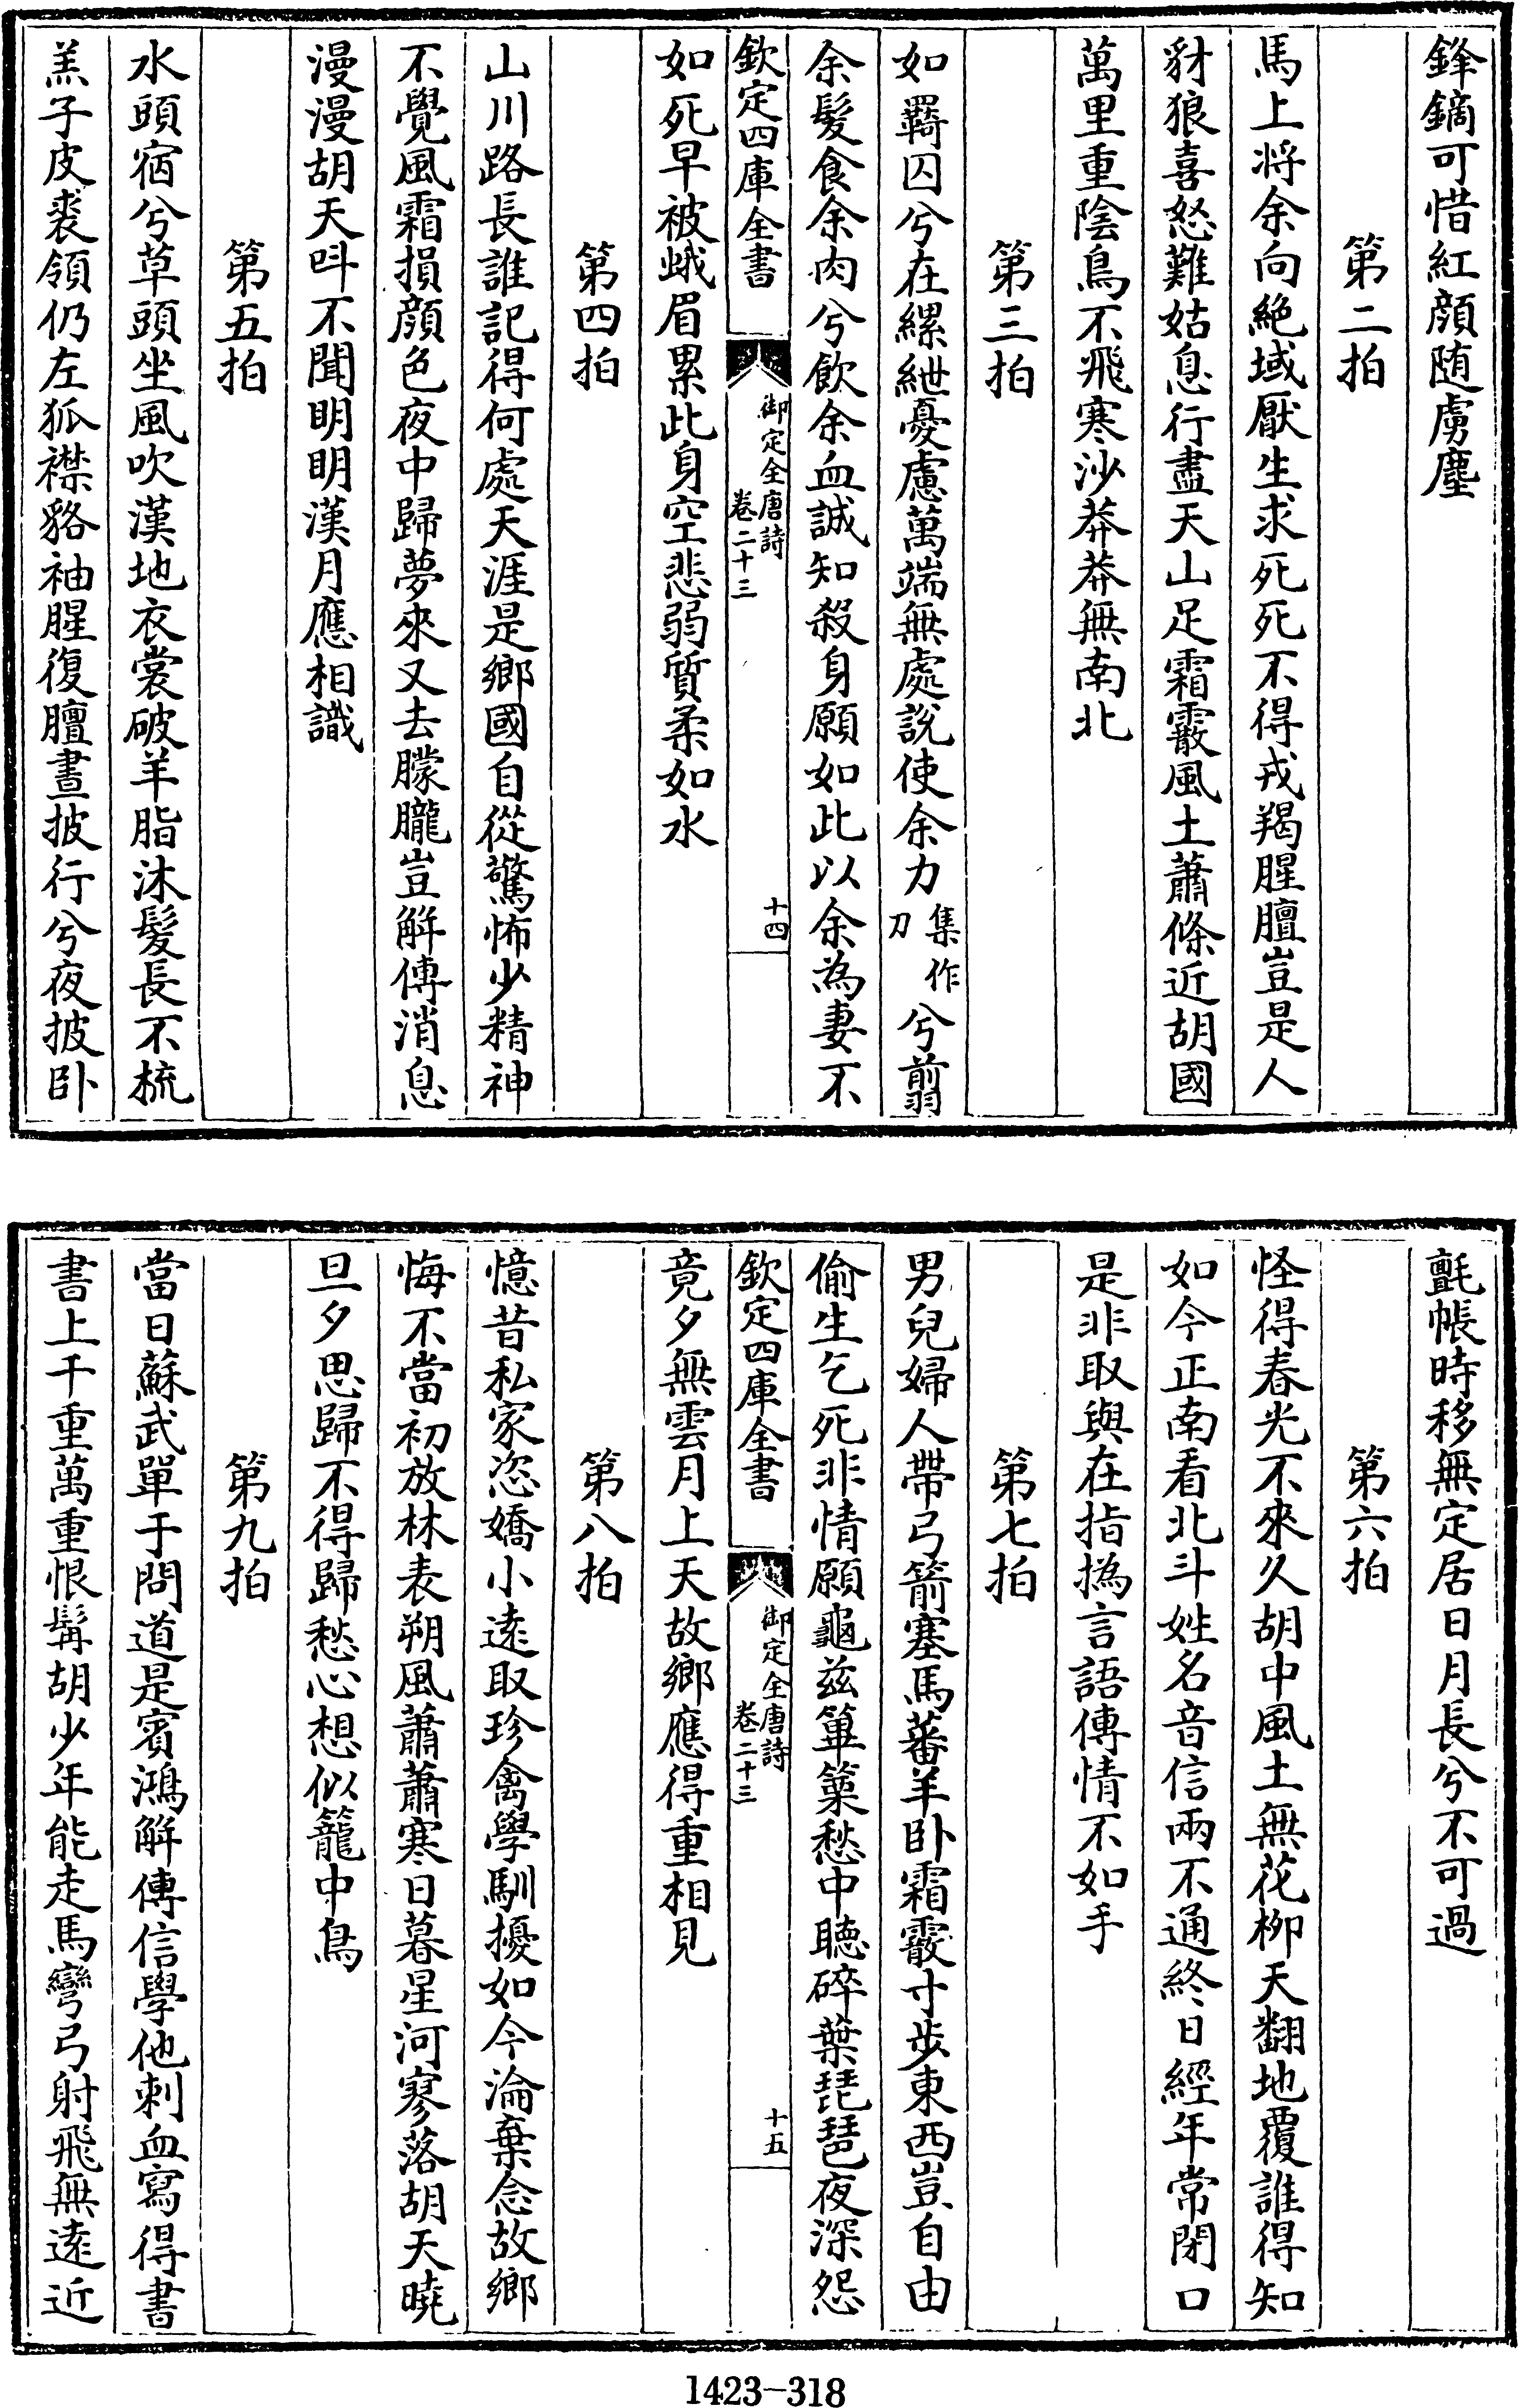 鋒鏑可惜紅顔随虜塵
第二拍
馬上将余向絶域厭生求死死不得戎羯腥膻豈是人
豺狼喜怒難姑息行盡天山足霜霰風土蕭條近胡國
萬里重陰鳥不飛寒沙莽莽無南北
第三拍
如羇囚兮在縲紲憂慮萬端無處説使余力集作刀兮翦
余髮食余肉兮飲余血誠知殺身願如此以余為妻不
欽定四庫全書
御定全唐詩
卷二十三
十四
如死早被蛾眉累此身空悲弱質柔如水
第四拍
山川路長誰記得何處天涯是鄉國自從驚怖少精神
不覺風霜損顔色夜中歸夢來又去朦朧豈觧傳消息
漫漫胡天呌不聞明明漢月應相識
第五拍
水頭宿兮草頭坐風吹漢地衣裳破羊脂沐髮長不梳
羔子皮裘領仍左狐襟貉袖腥復膻晝披行兮夜披卧
氊帳時移無定居日月長兮不可過
第六拍
怪得春光不來久胡中風土無花柳天翻地覆誰得知
如今正南看北斗姓名音信兩不通終日經年常閉口
是非取與在指撝言語傳情不如手
第七拍
男兒婦人帶弓箭塞馬蕃羊卧霜霰寸步東西豈自由
偷生乞死非情願龜兹篳篥愁中聴碎葉琵琶夜深怨
欽定四庫全書
御定全唐詩
卷二十三
十五
竟夕無雲月上天故鄉應得重相見
第八拍
憶昔私家恣嬌小遠取珍禽學馴擾如今淪棄念故鄉
悔不當初放林表朔風蕭蕭寒日暮星河寥落胡天曉
旦夕思歸不得歸愁心想似籠中鳥
第九拍
當日蘇武單于問道是賓鴻觧傳信學他刺血寫得書
書上千重萬重恨髯胡少年能走馬彎弓射飛無遠近
1423-318